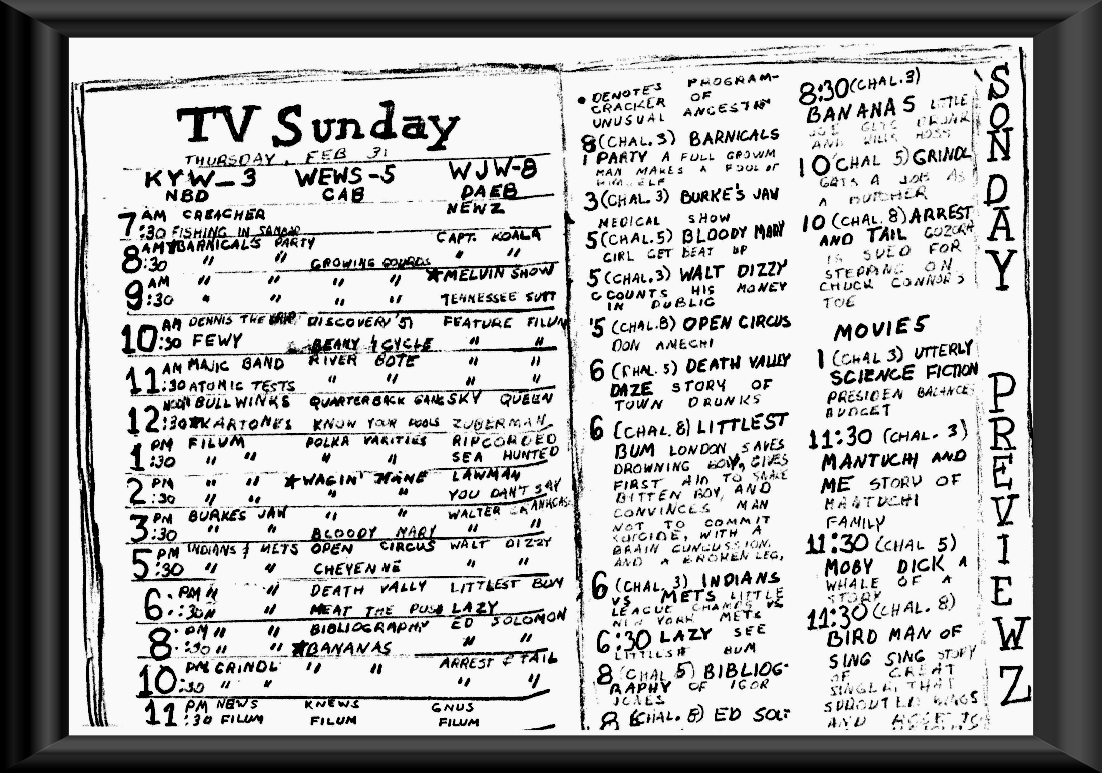 TV Sunday
THURSDAY, FEB 31
KYW-3 WEWS-5 WJW-8
NBD CAB DAEB
7 AM CREACHER NEWZ
:30 FISHING IN
8 AM BARNICALS PARTY CAPT. KOALA
:30 " " GROWING GOURDS " "
9 AM " " " " ★MELVIN SHOW
:30 " " " " TENNESSEE TUTT
10 AM DENNIS THE DISCOVERY '51 FEATURE FILUM
:30 FEWY BEANY & CYCLE " "
11 AM MAJIC BAND RIVER BOTE " "
:30 ATOMIC TESTS " " " "
12 NOON BULLWINKS QUARTERBACK GANE SKY QUEEN
:30 ★KARTONES KNOW YOUR FOOLS ZUBERMAN
1 PM FILUM POLKA VARITIES RIPCORDED
:30 " " " " SEA HUNTED
2 PM " " ★WAGIN' MANE LAWMAN
:30 " " " " YOU DAN'T SAY
3 PM BURKES JAW " " WALTER
:30 " " BLOODY MARY " "
5 PM INDIANS & METS OPEN CIRCUS WALT DIZZY
:30 " " CHEYENNE " "
6 PM " " DEATH VALLY LITTLEST BUM
:30 " " MEAT THE LAZY
8 PM " " BIBLIOGRAPHY ED SOLOMON
:30 " " ★BANANAS " "
10 PM GRINDL " " ARREST & TAIL
:30 " " " "
11 PM NEWS KNEWS GNUS
:30 FILUM FILUM FILUM
• DENOTES PROGRAM-
CRACKER OF
UNUSUAL ANCESTRY
8 (CHAL. 3) BARNICALS
PARTY A FULL GROWM
MAN MAKES A FOOL OF
HIMSELF
3 (CHAL. 3) BURKE'S JAW
MEDICAL SHOW
5 (CHAL. 5) BLOODY MARY
GIRL GET BEAT UP
5 (CHAL. 3) WALT DIZZY
COUNTS HIS MONEY
IN PUBLIC
5 (CHAL. 8) OPEN CIRCUS
DON AMECHI
6 (CHAL. 5) DEATH VALLY
DAZE STORY OF
TOWN DRUNKS
6 (CHAL. 8) LITTLEST
BUM LONDON SAVES
DROWNING BOY, GIVES
FIRST AID TO SNAKE
BITTEN BOY, AND
CONVINCES MAN
NOT TO COMMIT
SUICIDE, WITH A
BRAIN CUNCUSSION,
AND A BROKEN LEG.
6 (CHAL. 3) INDIANS
VS METS LITTLE
LEAGUE CHAMPS VS
NEW YORK METS
6:30 LAZY SEE
LITTLEST BUM
8 (CHAL 5) BIBLIOG-
RAPHY OF IGOR
JONES
8 (CHAL. 8) ED SOL-
8:30 (CHAL. 3)
BANANAS LITTLE
JOE GETS DRUNK
AND KILLS HOSS
10 (CHAL 5) GRINDL
GETS A JOB AS
A BUTCHER
10 (CHAL. 8) ARREST
AND TAIL
IS SUED FOR
STEPPING ON
CHUCK CONNORS
TOE
MOVIES
1 (CHAL 3) UTTERLY
SCIENCE FICTION
PRESIDEN BALANCES
BUDGET
11:30 (CHAL. 3)
MANTUCHI AND
ME STORY OF
MANTUCHI
FAMILY
11:30 (CHAL 5)
MOBY DICK A
WHALE OF A
STORY
11:30 (CHAL. 8)
BIRD MAN OF
SING SING STORY
OF GREAT
SINGER THAT
SPROUTED WINGS
AND
SONDAY PREVIEWZ